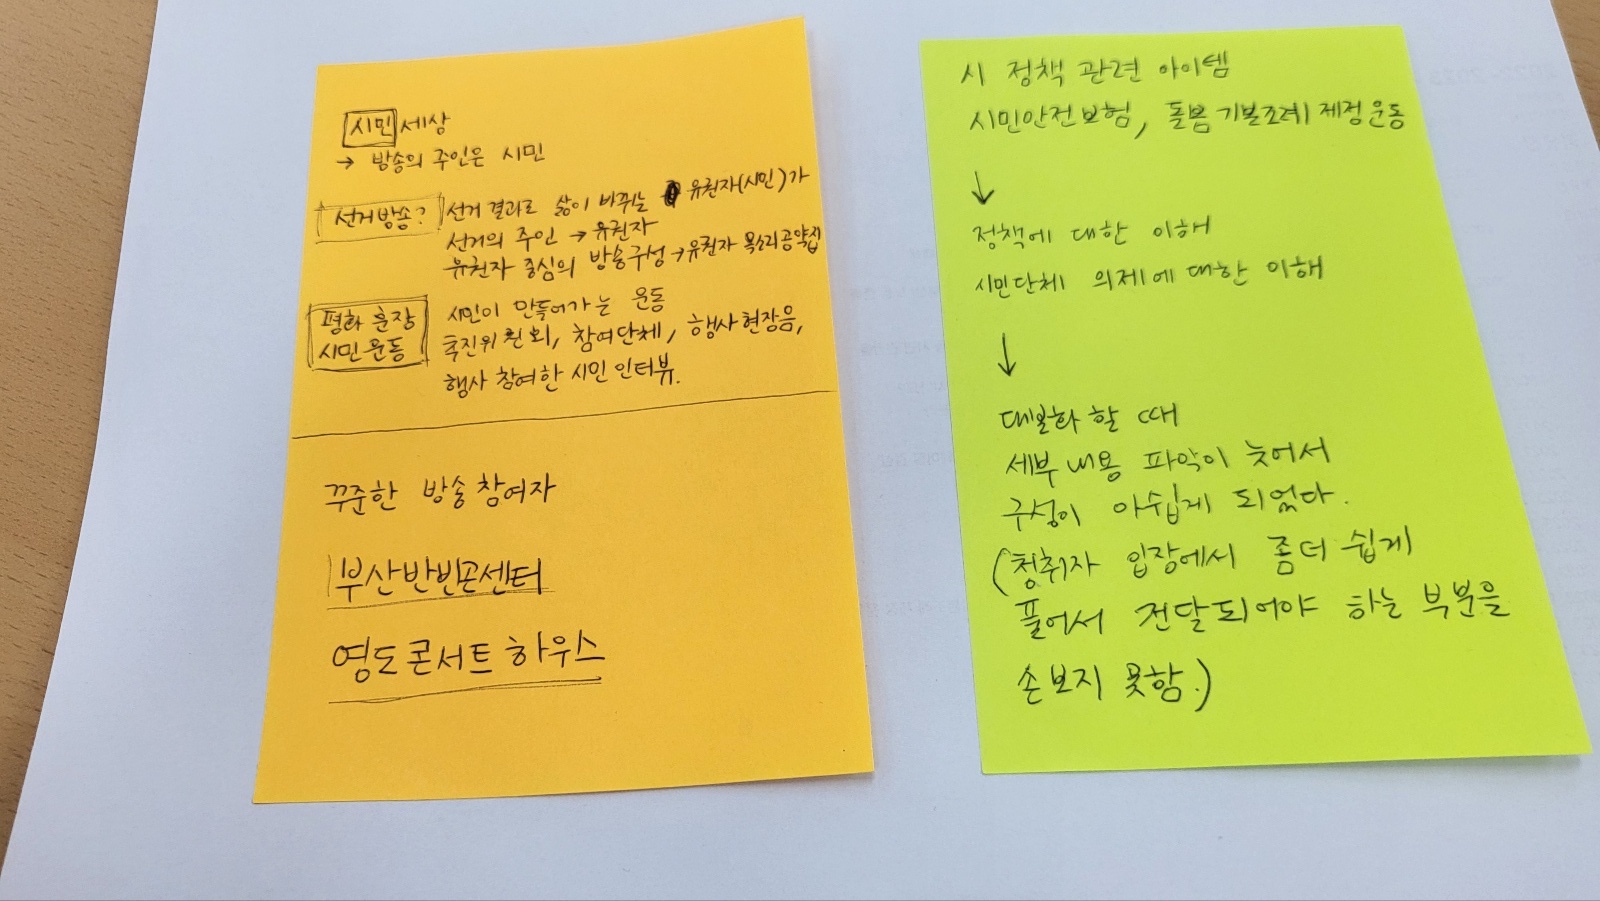 시민 세상
→ 방송의 주인은 시민
선거방송? 선거 결과로 삶이 바뀌는 유권자(시민)가
선거의 주인 → 유권자
유권자 중심의 방송구성 → 유권자 목소리공약집
평화 훈장
시민 운동
시민이 만들어가는 운동
추진위원회, 참여단체, 행사현장음,
행사 참여한 시민 인터뷰.
꾸준한 방송 참여자
부산반빈곤센터
영도 콘서트 하우스
시 정책 관련 아이템
시민안전보험, 돌봄 기본조례 제정운동
↓
정책에 대한 이해
시민단체 의제에 대한 이해
↓
대본화 할 때
세부 내용 파악이 늦어서
구성이 아쉽게 되었다.
(청취자 입장에서 좀더 쉽게
풀어서 전달되어야 하는 부분을
손보지 못함.)